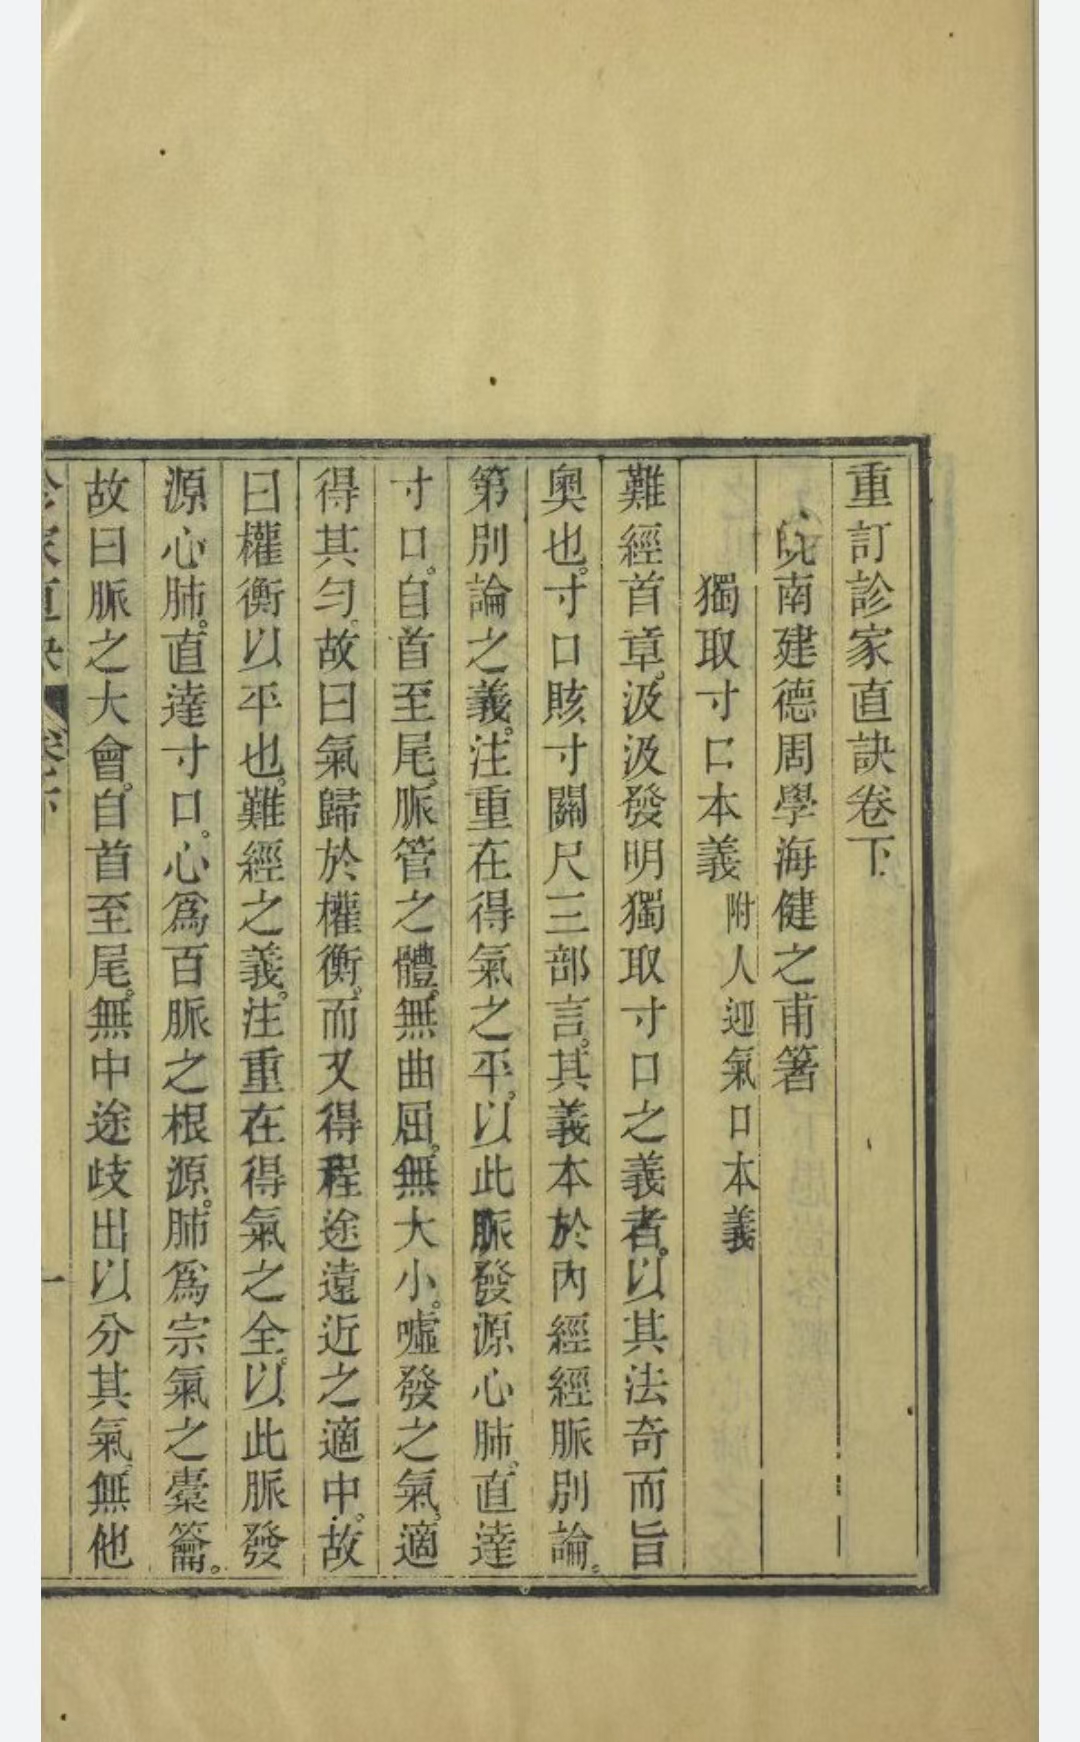 重訂診家直訣卷下
皖南建德周學海健之甫箸
獨取寸口本義附人迎氣口本義
難經首章。汲汲發明獨取寸口之義者。以其法奇而旨
奧也。寸口賅寸關尺三部言。其義本於內經經脈別論。
第別論之義。注重在得氣之平。以此脈發源心肺。直達
寸口。自首至尾。脈管之體。無曲屈。無大小。噓發之氣。適
得其勻。故曰氣歸於權衡。而又得程途遠近之適中。故
曰權衡以平也。難經之義。注重在得氣之全。以此脈發
源心肺。直達寸口。心爲百脈之根源。肺爲宗氣之橐籥。
故曰脈之大會。自首至尾。無中途歧出以分其氣。無他
診家直訣 卷下 一